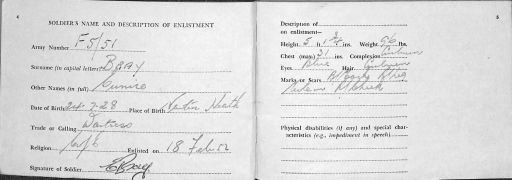 4
SOLDIER'S NAME AND DESCRIPTION OF ENLISTMENT
Army Number F5/51
Surname (in capital letters) BRAY
Other Names (in full) Eunice
Date of Birth 24.7.28 Place of Birth Neath
Trade or Calling Waitress
Religion C/E Enlisted on 18 Feb 52
Signature of Soldier E Bray
5
Description of
on enlistment—
Height 5 ft 1 3/4 ins. Weight 96 lbs.
Chest (max.) 31 ins. Complexion
Eyes Blue Hair
Marks or Scars
Physical disabilities (if any) and special char-
acteristics (e.g., impediment in speech)